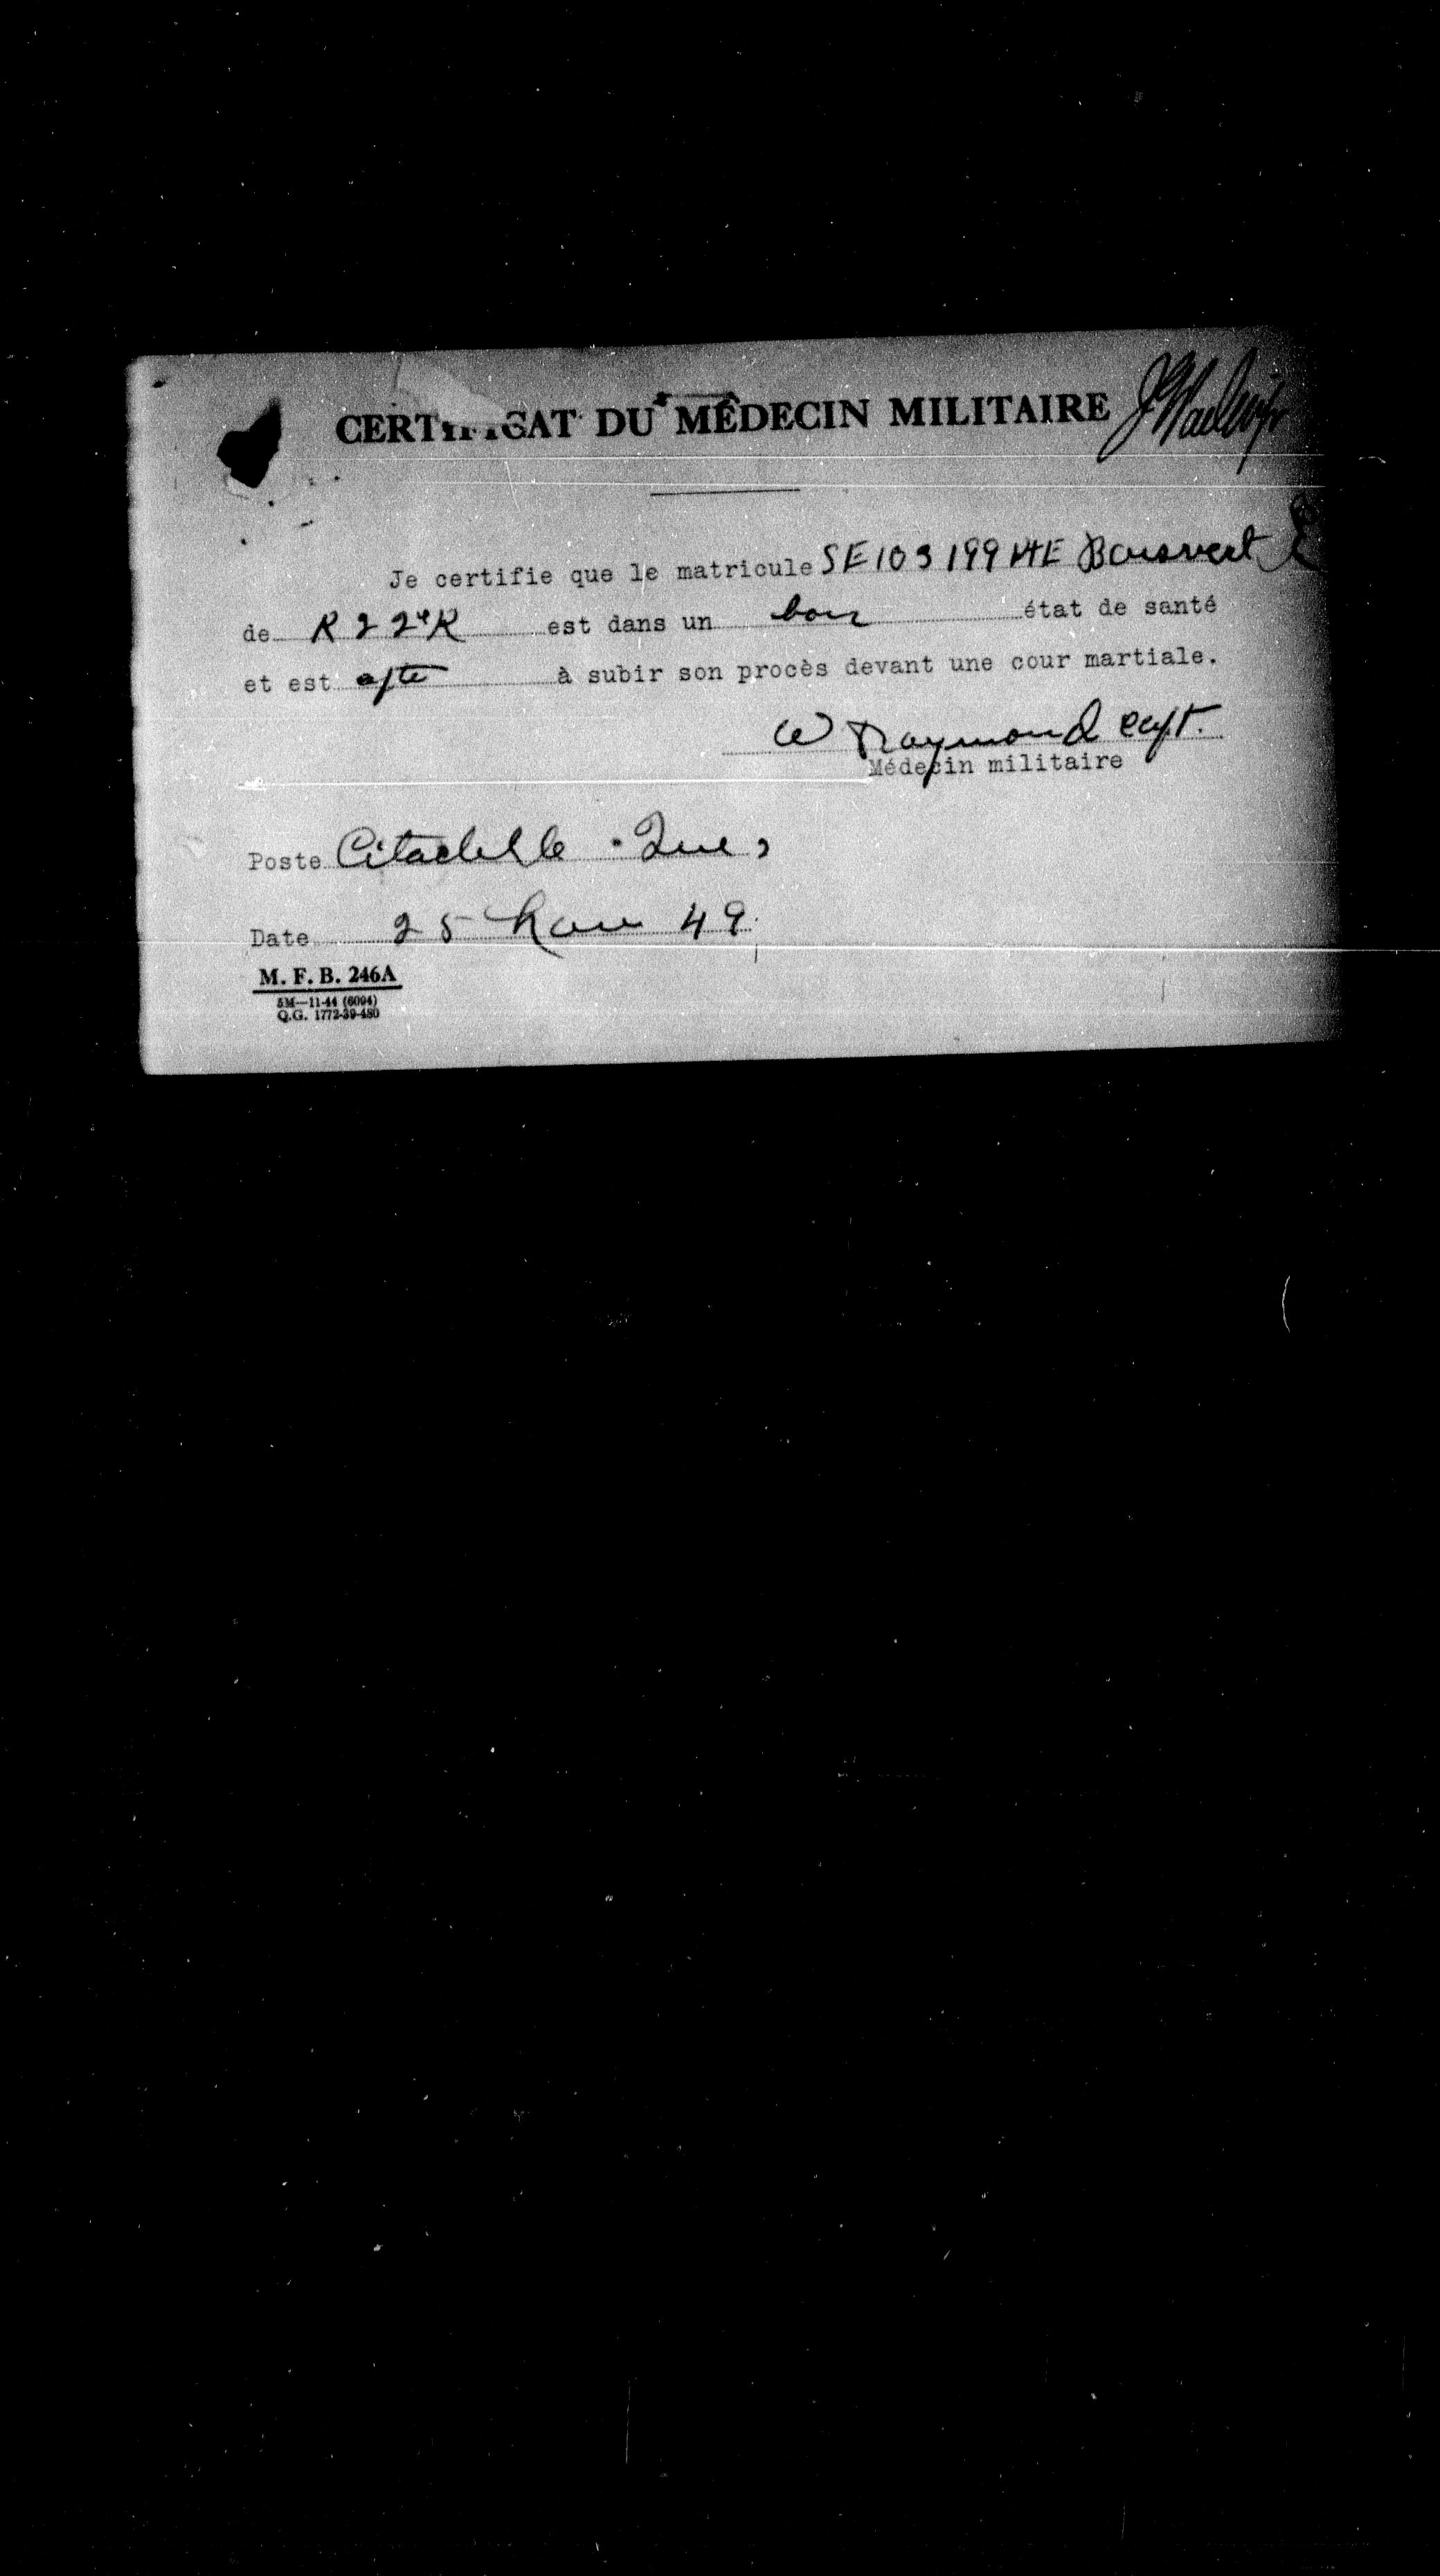 CERTIFICAT DU MÉDECIN MILITAIRE
Je certifie que le matricule SE103199 PTE Boisvert
de R 22e R est dans un bon état de santé
et est apte à subir son procès devant une cour martiale.
W Raymond capt.
Médecin militaire
Poste Citadelle Que,
Date 25 49
M. F. B. 246A
5M—11-44 (6094)
Q.G. 1772-39-480